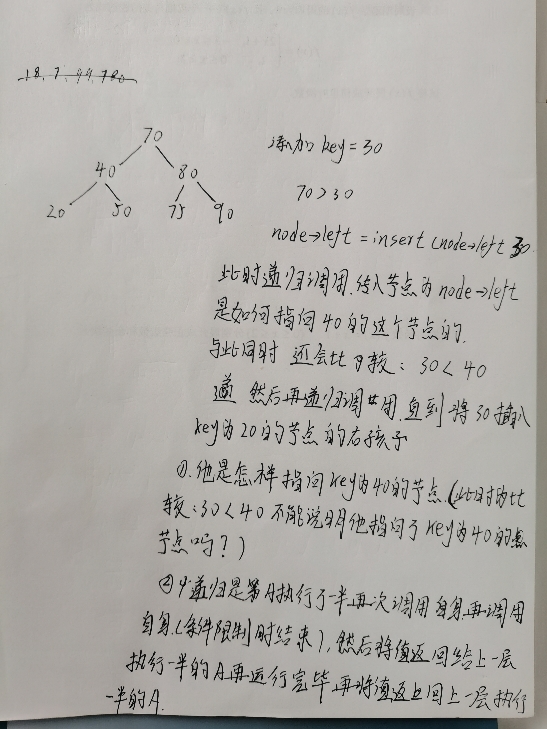 18.7.99.780
70
40 80
20 50 75 90
添加 key = 30
70 > 30
node→left = insert (node→left 30
此时递归调用.传入节点为 node→left
是如何指向40的这个节点的.
与此同时 还会比较: 30 < 40
递 然后再递归调用.直到将30插入
key为20的节点的右孩子
①.他是怎样指向key为40的节点.(此时的比
较:30 < 40 不能说明他指向了key为40的
节点吗?)
② 递归是第A执行了一半再次调用自身再调用
自身.(条件限制时结束),然后将值返回给上一层
执行一半的A再运行完毕再将值返回上一层执行
一半的A.